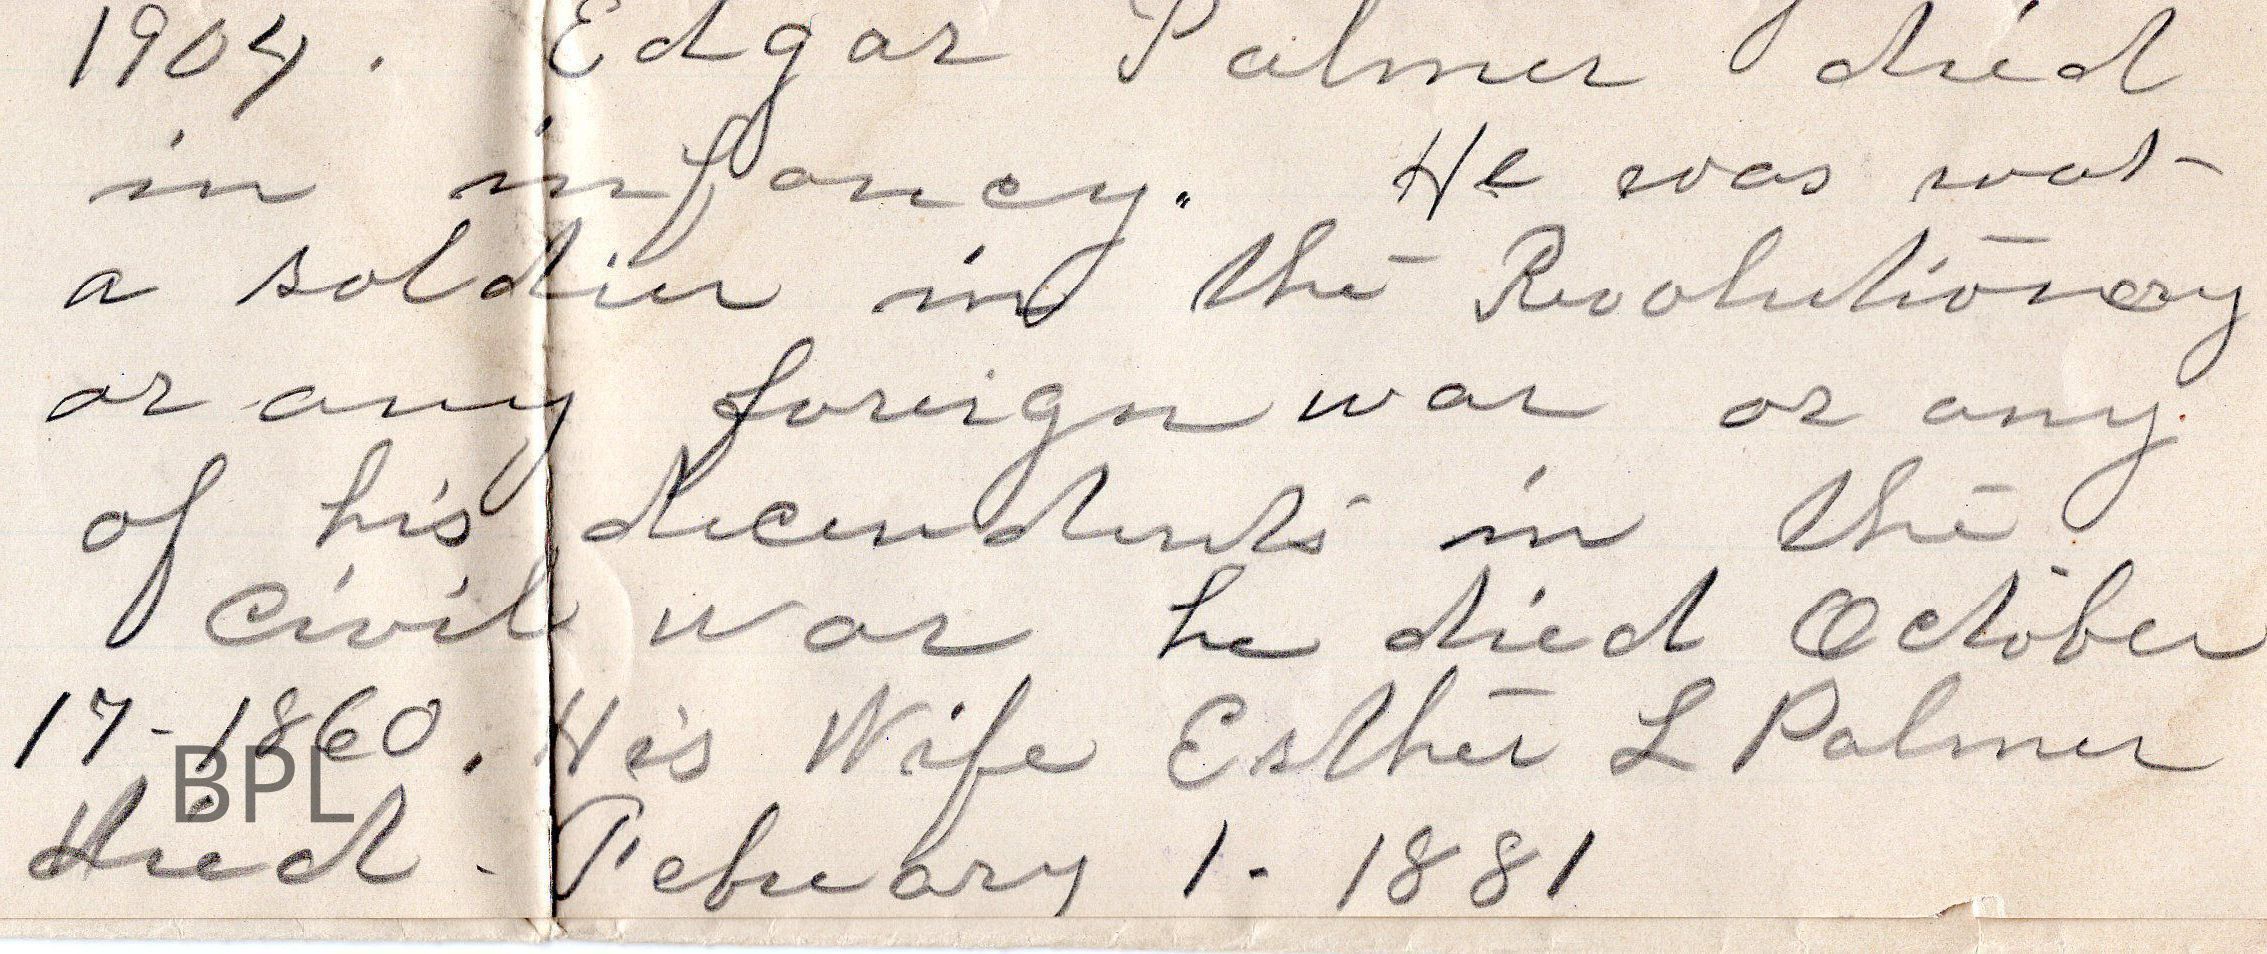 1904. Edgar Palmer died
in infancy. He was not
a soldier in the Revolutionery
or any foreign war or any
of his decendents in the
Civil war he died October
17-1860. His Wife Esther L Palmer
died. Febuary 1. 1881
BPL